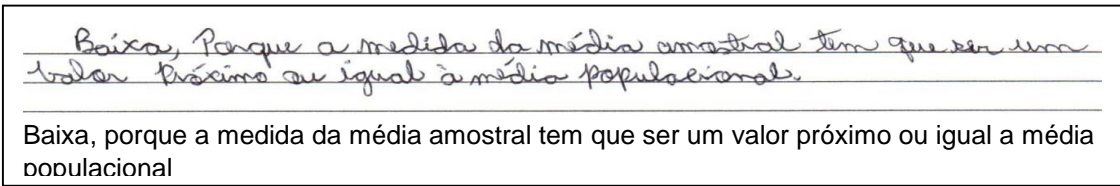 Baixa, Porque a medida da média amostral tem que ser um
valor Próximo ou igual à média populacional.
Baixa, porque a medida da média amostral tem que ser um valor próximo ou igual a média
populacional